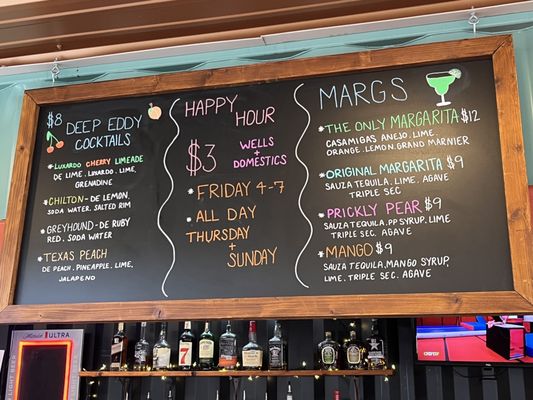 $8 DEEP EDDY
COCKTAILS
* LUXARDO CHERRY LIMEADE
DE LIME. LUXARDO. LIME,
GRENADINE
* CHILTON - DE LEMON
SODA WATER. SALTED RIM
* GREYHOUND - DE RUBY
RED. SODA WATER
* TEXAS PEACH
DE PEACH. PINEAPPLE. LIME,
JALAPEÑO
HAPPY
HOUR
$3 WELLS
+
DOMESTICS
* FRIDAY 4-7
* ALL DAY
THURSDAY
+
SUNDAY
MARGS
* THE ONLY MARGARITA $12
CASAMIGAS ANEJO. LIME.
ORANGE. LEMON. GRAND MARNIER
* ORIGINAL MARGARITA $9
SAUZA TEQUILA. LIME, AGAVE
TRIPLE SEC
* PRICKLY PEAR $9
SAUZA TEQUILA. PP SYRUP. LIME
TRIPLE SEC. AGAVE
* MANGO $9
SAUZA TEQUILA, MANGO SYRUP,
LIME. TRIPLE SEC. AGAVE
ULTRA
7